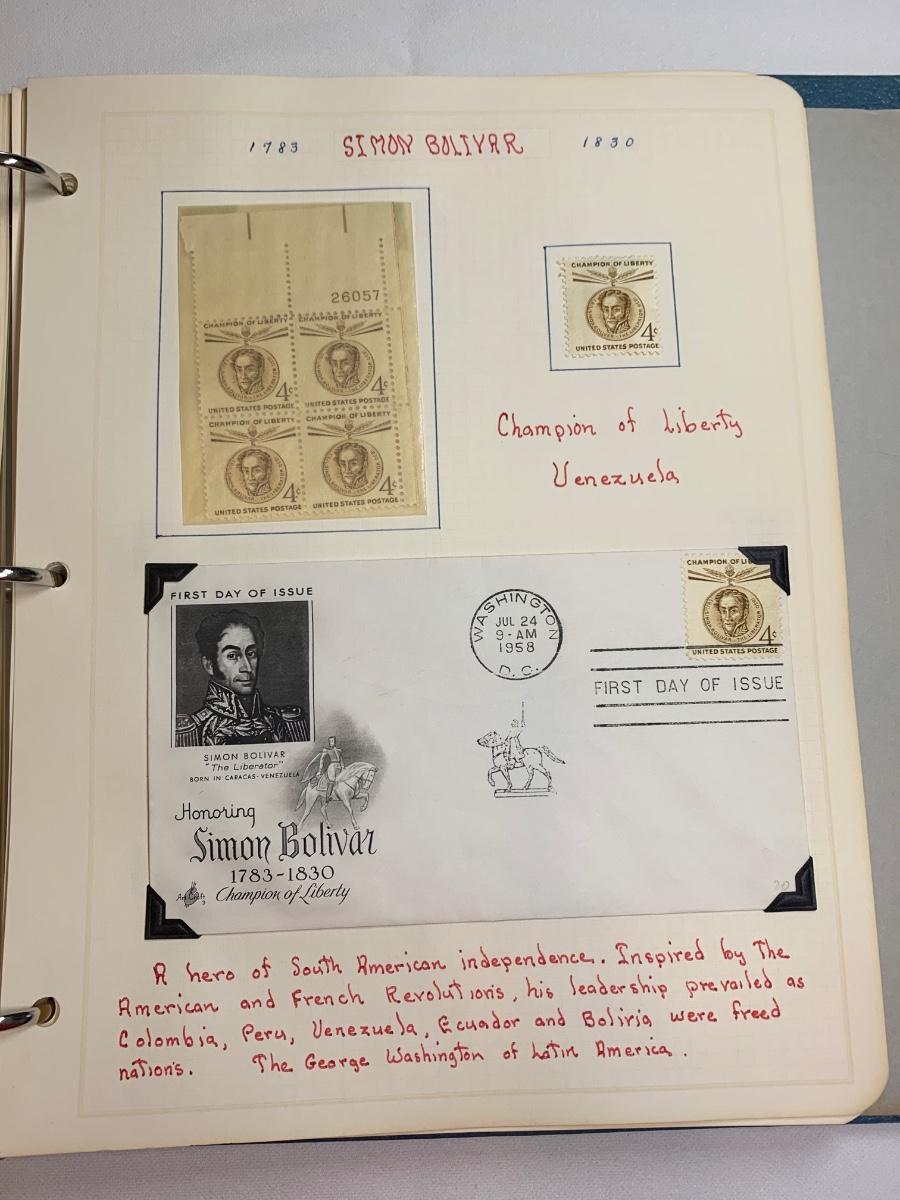 1783 SIMON BOLIVAR 1830
26057
CHAMPION OF LIBERTY CHAMPION OF LIBERTY
4¢ 4¢
UNITED STATES POSTAGE UNITED STATES POSTAGE
CHAMPION OF LIBERTY CHAMPION OF LIBERTY
4¢ 4¢
UNITED STATES POSTAGE UNITED STATES POSTAGE
CHAMPION OF LIBERTY
SIMON BOLIVAR THE LIBERATOR
4¢
UNITED STATES POSTAGE
Champion of Liberty
Venezuela
FIRST DAY OF ISSUE
SIMON BOLIVAR
"The Liberator"
BORN IN CARACAS - VENEZUELA
Honoring
Simon Bolivar
1783-1830
Champion of Liberty
Art Craft
WASHINGTON
JUL 24
9-AM
1958
D. C.
CHAMPION OF LIB
1783 SIMON BOLIVAR THE LIBERATOR 1830
4¢
UNITED STATES POSTAGE
FIRST DAY OF ISSUE
20
A hero of South American independence. Inspired by the
American and French Revolution's, his leadership prevailed as
Colombia, Peru, Venezuela, Ecuador and Bolivia were freed
nation's. The George Washington of Latin America.